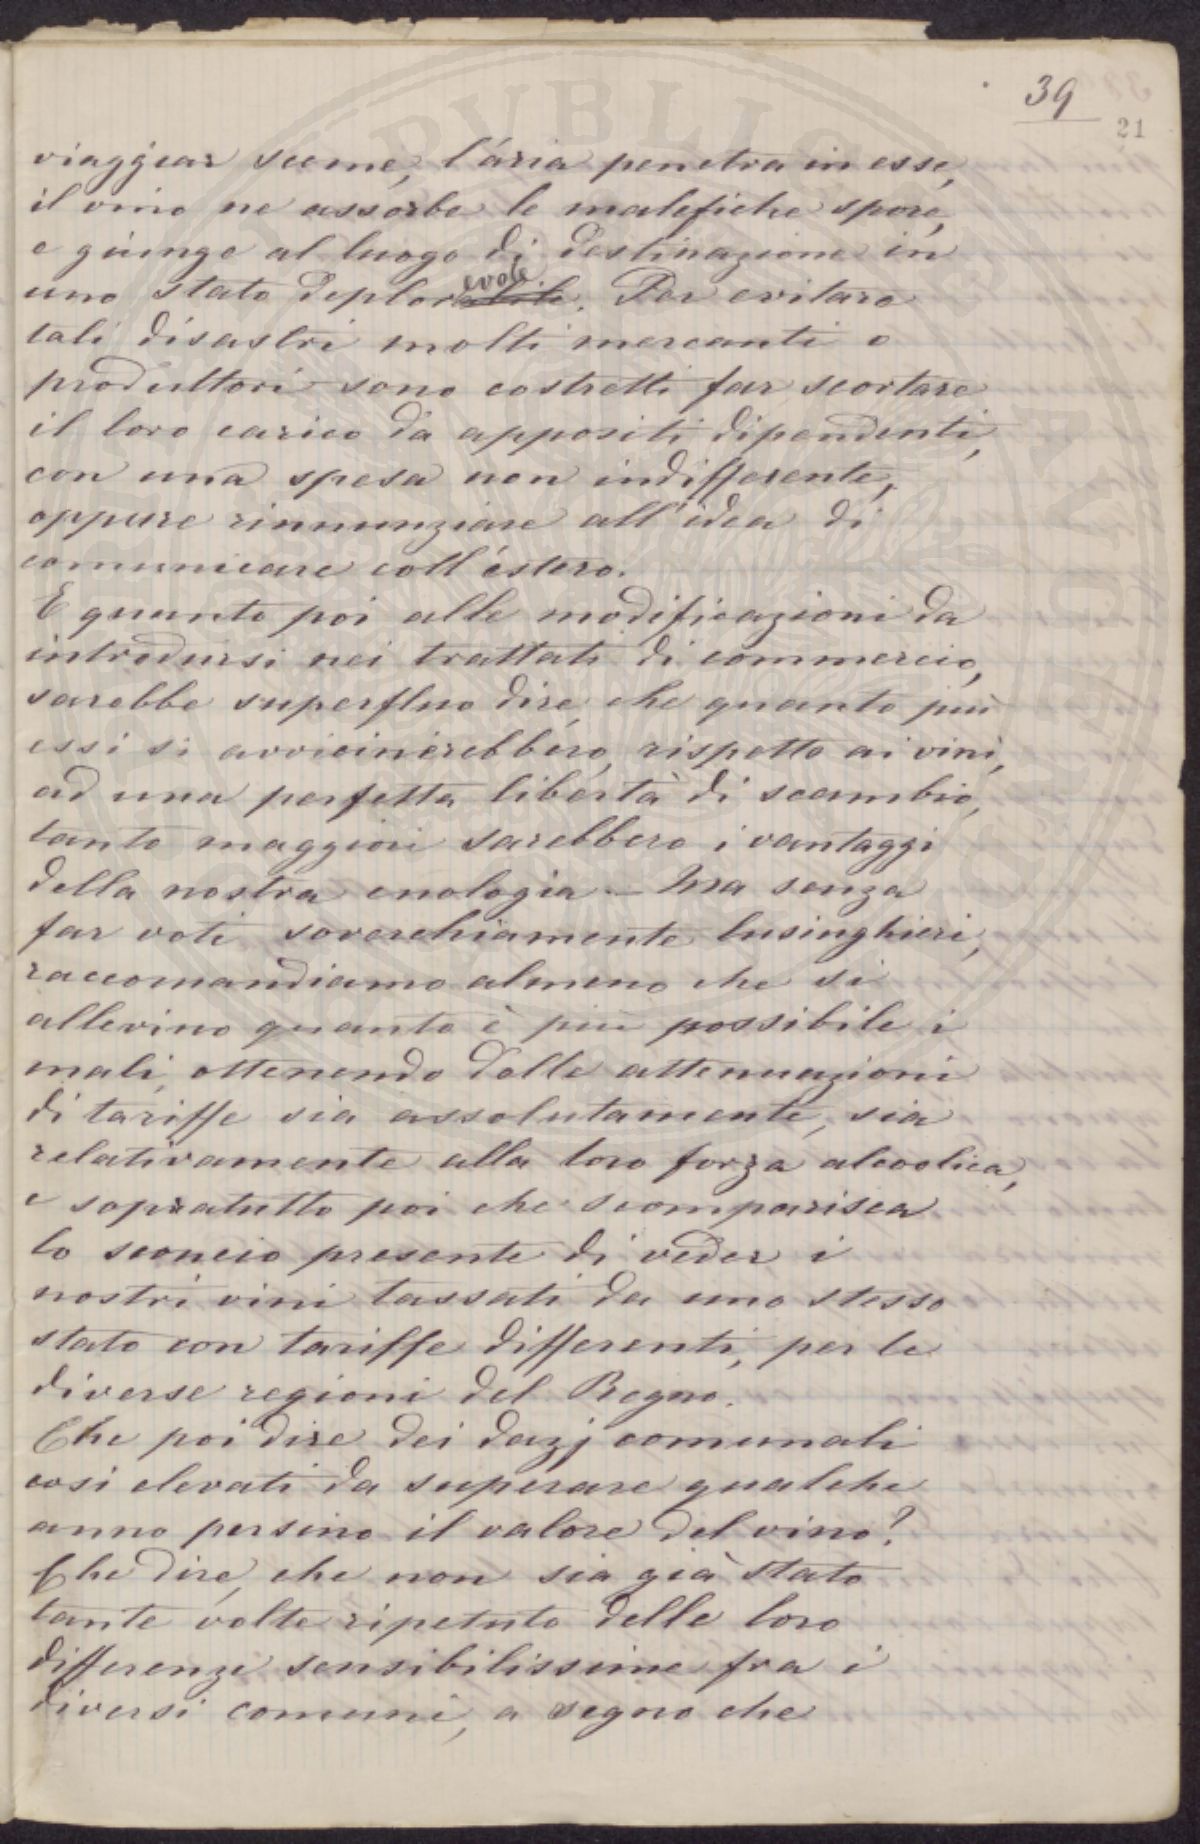 39
21
viaggiar sceme, l'aria penetra in esse,
il vino ne assorbe le malefiche spore,
e giunge al luogo di destinazione in
uno stato deplorevole. Per evitare
tali disastri molti mercanti o
produttori sono costretti far scortare
il loro carico da appositi dipendenti,
con una spesa non indifferente,
oppure rinnunziare all'idea di
comunicare coll'estero.
E quanto poi alle modificazioni da
introdursi nei trattati di commercio,
sarebbe superfluo dire, che quanto più
essi si avvicinerebbero, rispetto ai vini,
ad una perfetta libertà di scambio,
tanto maggiori sarebbero i vantaggi
della nostra enologia. - Ma senza
far voti soverchiamente lusinghieri,
raccomandiamo almeno che si
allevino quanto è più possibile i
mali, ottenendo dalle attenuazioni
di tariffe sia assolutamente, sia
relativamente alla loro forza alcoolica,
e sopratutto poi che scomparisca
lo sconcio presente di veder i
nostri vini tassati da uno stesso
stato con tariffe differenti, per le
diverse regioni del Regno.
Che poi dire dei dazj comunali
così elevati da superare qualche
anno persino il valore del vino?
Che dire, che non sia già stato
tante volte ripetuto delle loro
differenze sensibilissime fra i
diversi comuni, a segno che